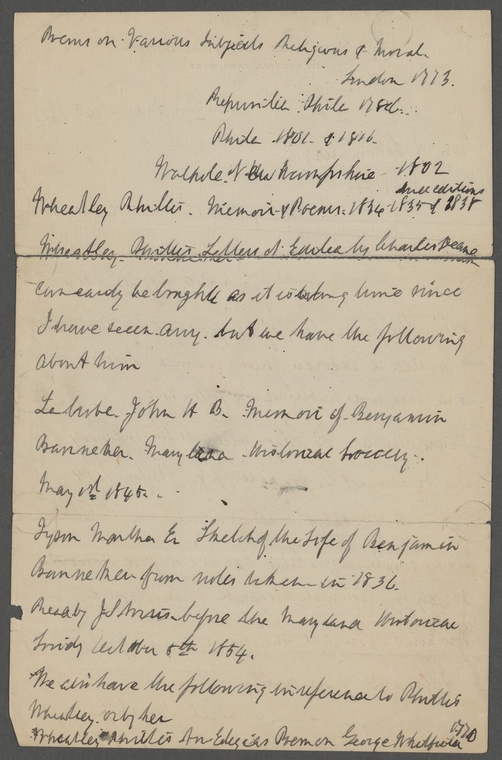 Poems on Various Subjects Religious & Moral
London 1773.
Phila 1786.
Phila 1801. & 1816.
Walpole New Hampshire 1802
three editions
Wheatley Phillis. Memoir & Poems. 1834 - 1835 & 1838
Wheatley Phillis Letters Edited by Charles Deane
be bought as it is a long time since
I have seen any. but we have the following
about him
Latrobe. John H B. Memoir of Benjamin
Banneker. Maryland Historical Society.
May 1st 1845.
Tyson Martha E. Sketch of the Life of Benjamin
Banneker from notes taken in 1836.
Read by J S Norris before the Maryland Historical
Society October 5th 1854.
We also have the following in reference to Phillis
Wheatley or by her
Wheatley Phillis An Poem on George Whitfield 1770